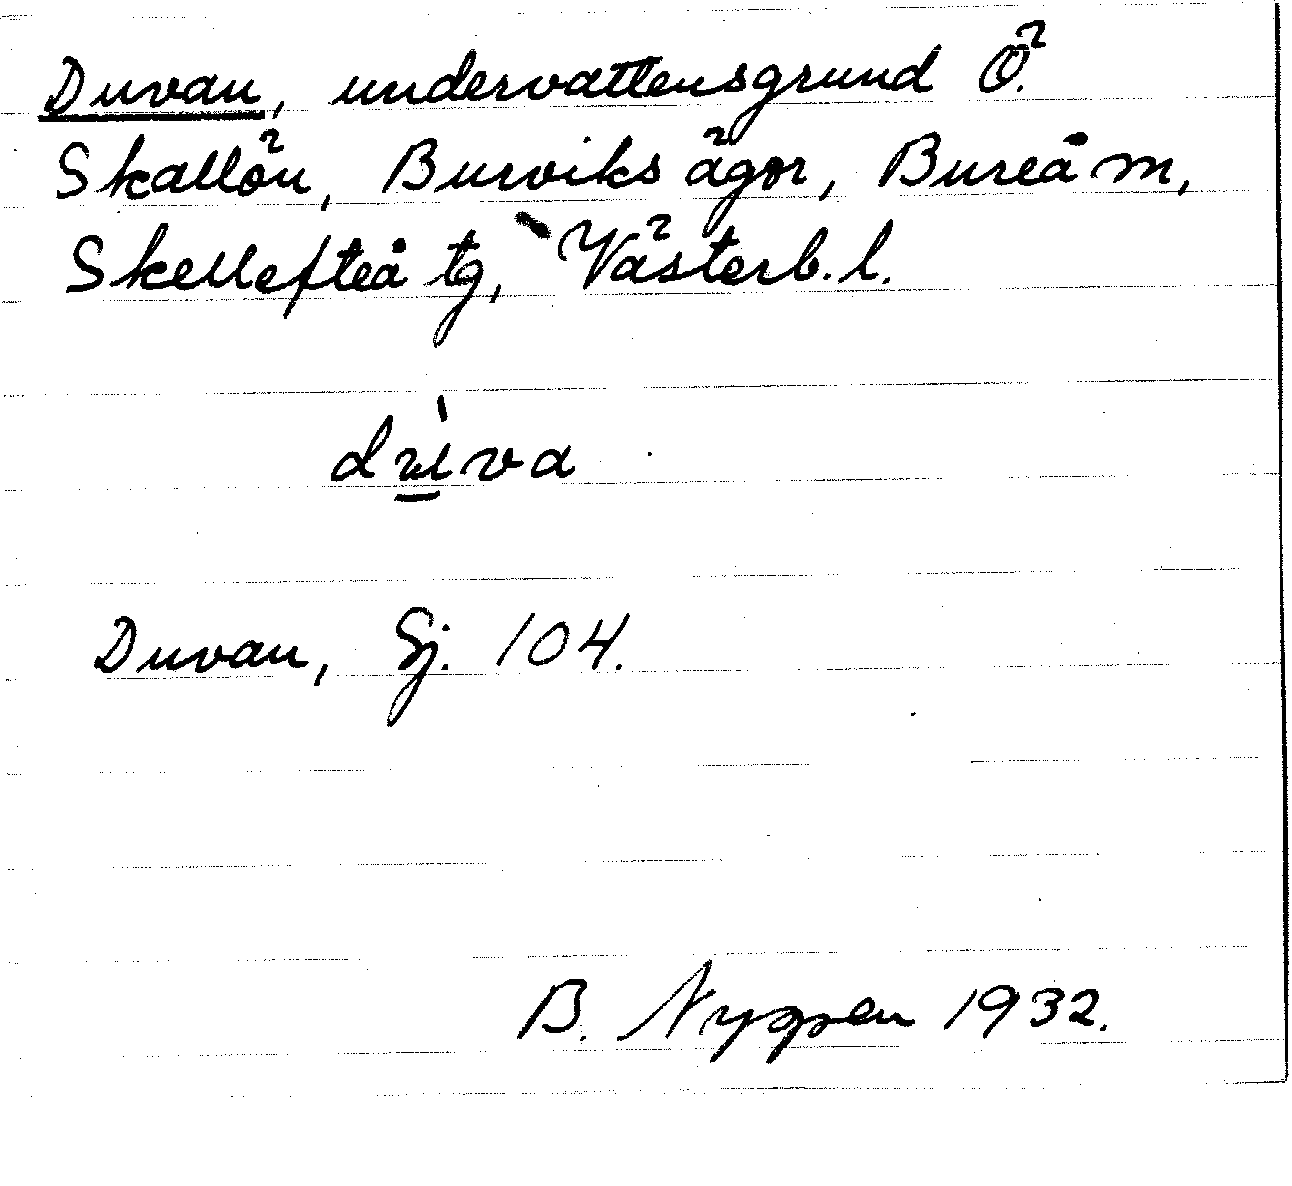 Duvan, undervattensgrund Ö.
Skallön, Burviks ägor, Bureå m,
Skellefteå tg, Västerb. l.
Duvan, Sj. 104.
B. Nygren 1932.